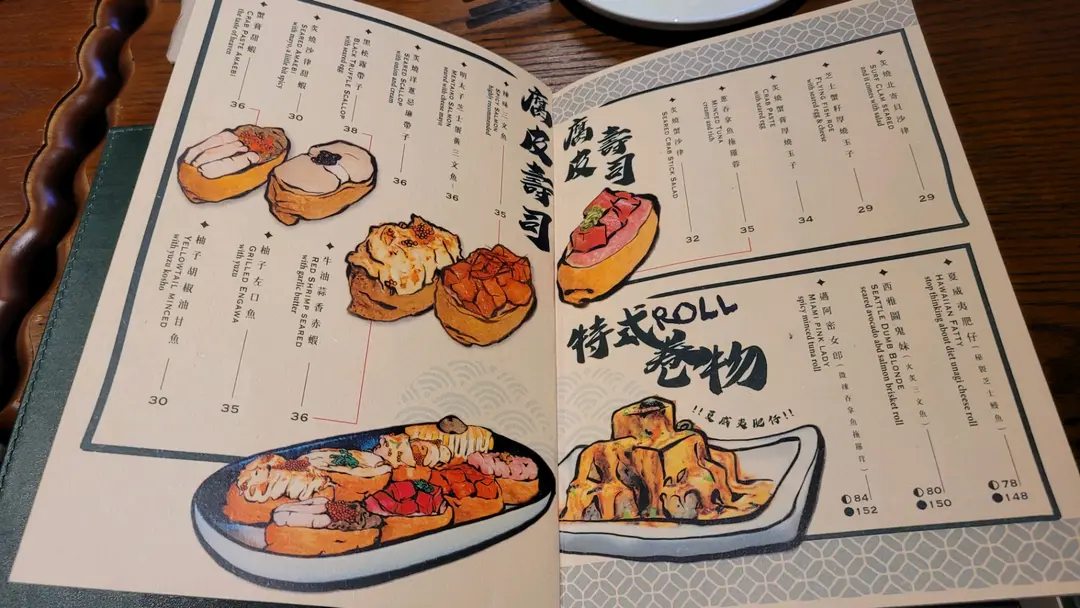 腐皮壽司
辣味三文魚
SPICY SALMON
highly recommended
35
明太子芝士蟹黃三文魚
MENTAIKO SALMON
seared with cheese mayo
36
炙燒洋蔥忌廉帶子
SEARED SCALLOP
with onion and cream
36
黑松露帶子
BLACK TRUFFLE SCALLOP
with seared egg
38
炙燒沙律甜蝦
SEARED AMAEBI
with mayo, a little bit spicy
30
蟹膏甜蝦
CRAB PASTE AMAEBI
the taste of heaven
36
牛油蒜香赤蝦
RED SHRIMP SEARED
with garlic butter
36
柚子左口魚
GRILLED ENGAWA
with yuzu
35
柚子胡椒油甘魚
YELLOWTAIL MINCED
with yuzu kosho
30
腐皮壽司
炙燒北寄貝沙律
SURF CLAM SEARED
and it comes with salad
29
芝士蟹籽厚燒玉子
FLYING FISH ROE
with seared egg & cheese
29
炙燒蟹膏厚燒玉子
CRAB PASTE
with seared egg
34
蔥吞拿魚拖羅蓉
MINCED TUNA
creamy and rich
35
炙燒蟹沙律
SEARED CRAB STICK SALAD
32
特式ROLL
卷物
夏威夷肥仔
HAWAIIAN FATTY
stop thinking about diet unagi cheese roll
78
148
西雅圖鬼妹(火炙三文魚)
SEATTLE DUMB BLONDE
seared avocado abd salmon brisket roll
80
150
邁阿密女郎
MIAMI PINK LADY
spicy minced tuna roll
84
152
!!夏威夷肥仔!!